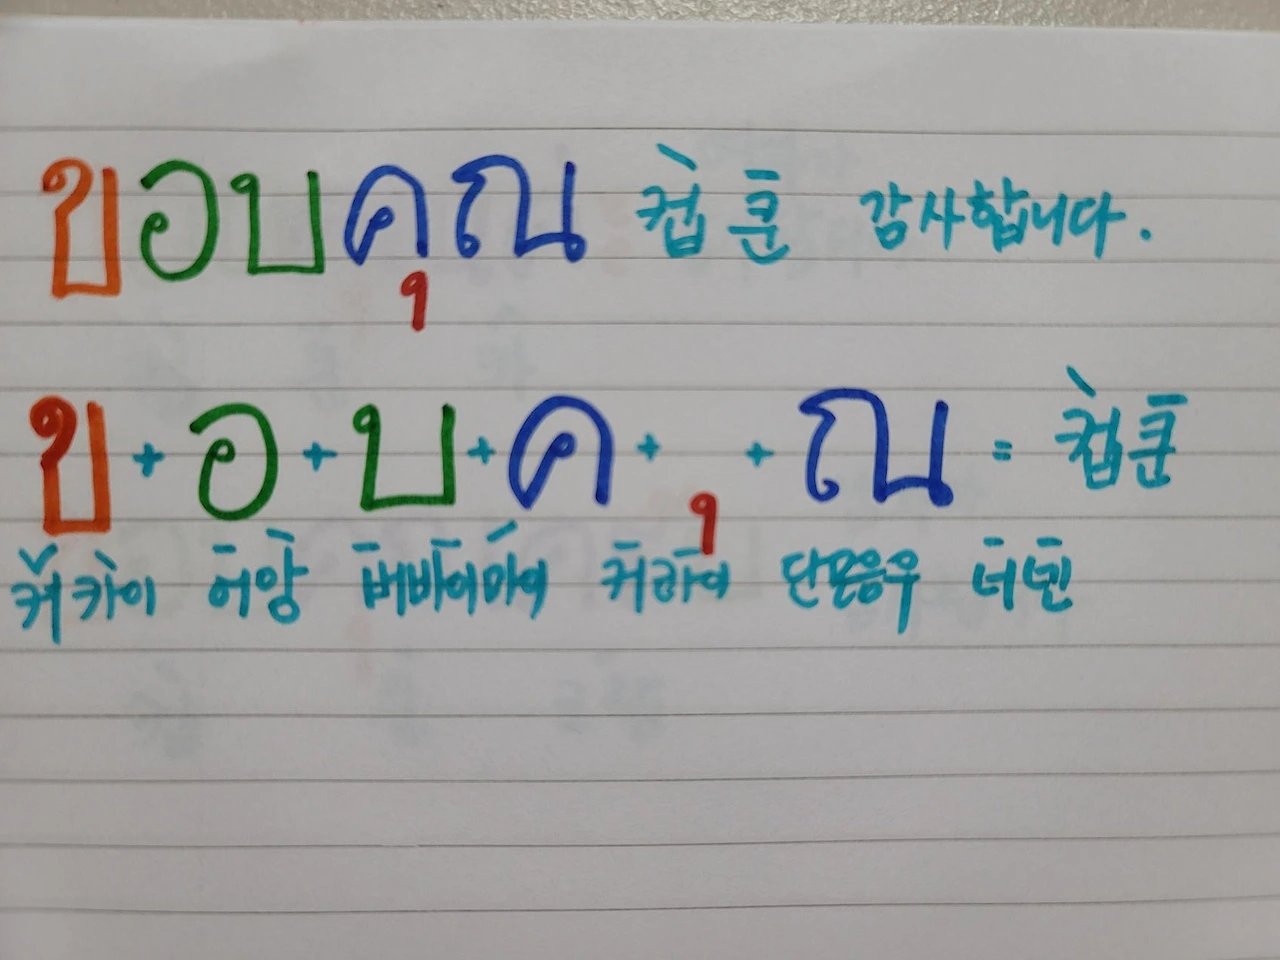 ขอบคุณ 컵쿤 감사합니다.
ข + อ + บ + ค + ุ + ณ = 컵쿤
커카이 어앙 버바이마이 커콰이 단모음우 너넨